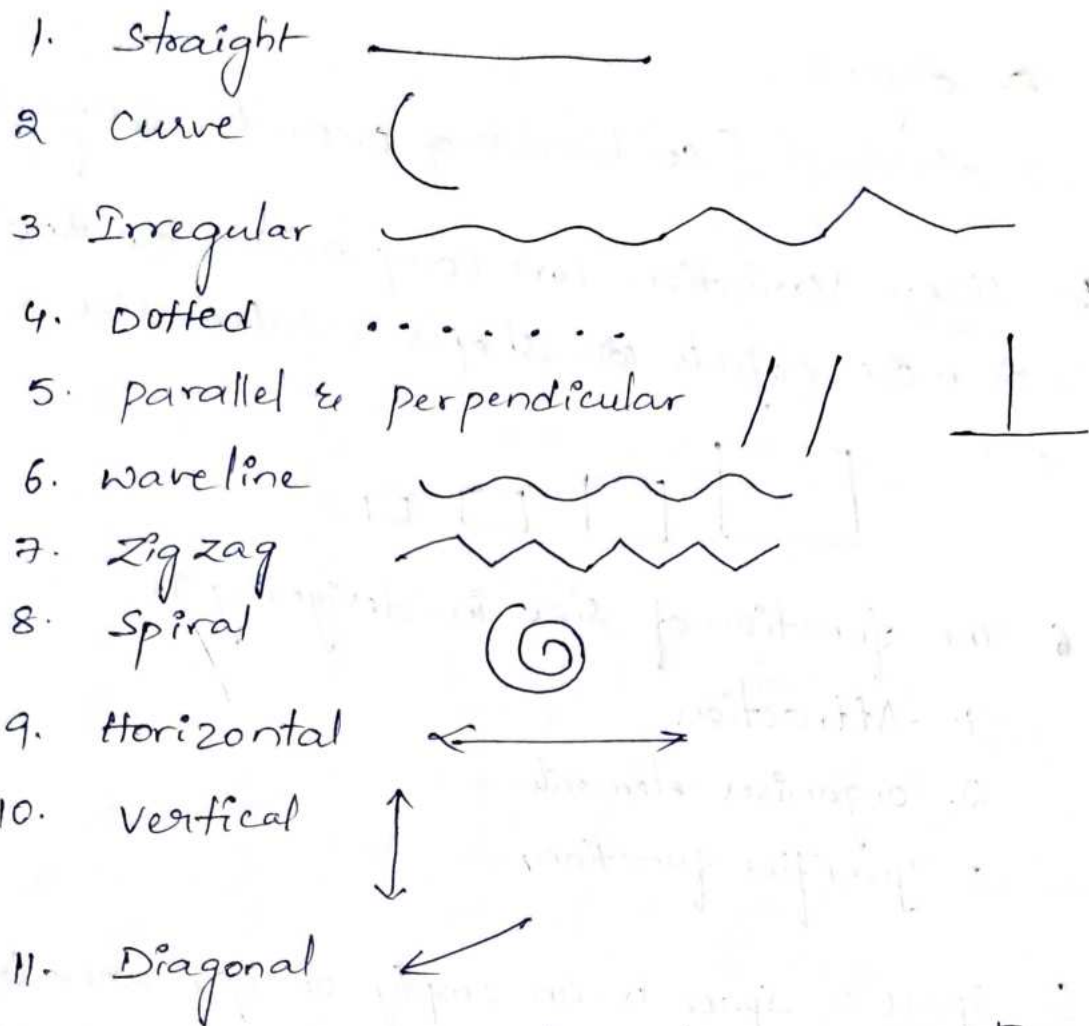 1. Straight
2 curve
3. Irregular
4. Dotted
5. parallel & perpendicular
6. waveline
7. Zig zag
8. Spiral
9. Horizontal
10. vertical
11. Diagonal